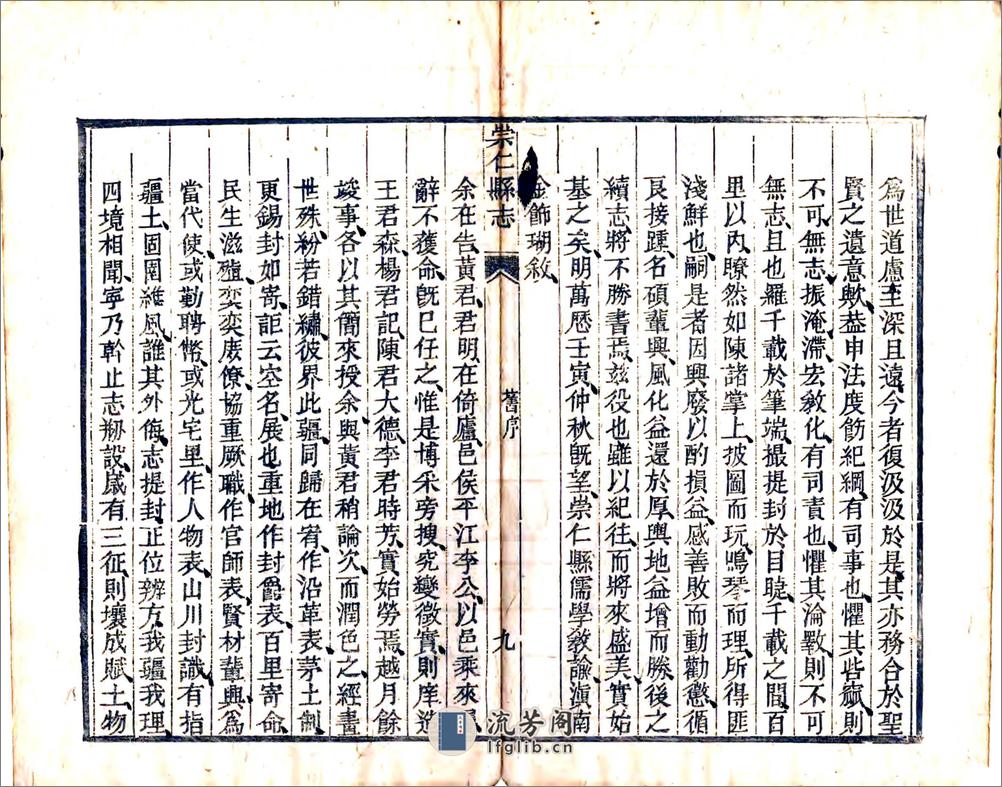 爲世道慮至深且遠今者復汲汲於是其亦務合於聖
賢之遺意歟葢申法度飭紀綱有司事也懼其呰窳則
不可無志振淹滯宏敎化有司責也懼其淪斁則不可
無志且也羅千載於筆端撮提封於目睫千載之間百
里以內瞭然如陳諸掌上披圖而玩鳴琴而理所得匪
淺鮮也嗣是者因興廢以酌損益感善敗而動勸懲循
良接踵名碩輩興風化益還於厚輿地益增而勝後之
續志將不勝書焉兹役也雖以紀往而將來盛美實始
基之矣明萬厯壬寅仲秋旣望崇仁縣儒學敎諭滇南
金飾瑚敘
崇仁縣志
舊序
九
余在告黃君君明在倚廬邑侯平江李公以邑乘來
辭不獲命旣巳任之惟是博采旁搜究變徵實則庠造
王君森楊君記陳君大德李君時芳實始勞焉越月餘
竣事各以其簡來授余與黃君稍論次而潤色之經畫
世殊紛若錯繡彼界此疆同歸在宥作沿革表茅土制
更錫封如寄詎云空名展也重地作封爵表百里寄命
民生滋殖奕奕庶僚協重厥職作官師表賢材輩興爲
當代使或勒聘幣或光宅里作人物表山川封識有指
疆土固圉維風誰其外侮志提封正位辨方我疆我理
四境相聞寧乃幹止志剏設嵗有三征則壤成賦土物
流芳阁
lfglib.cn